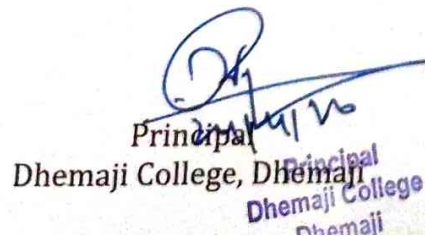 Principal
Dhemaji College, Dhemaji
Principal
Dhemaji College
Dhemaji